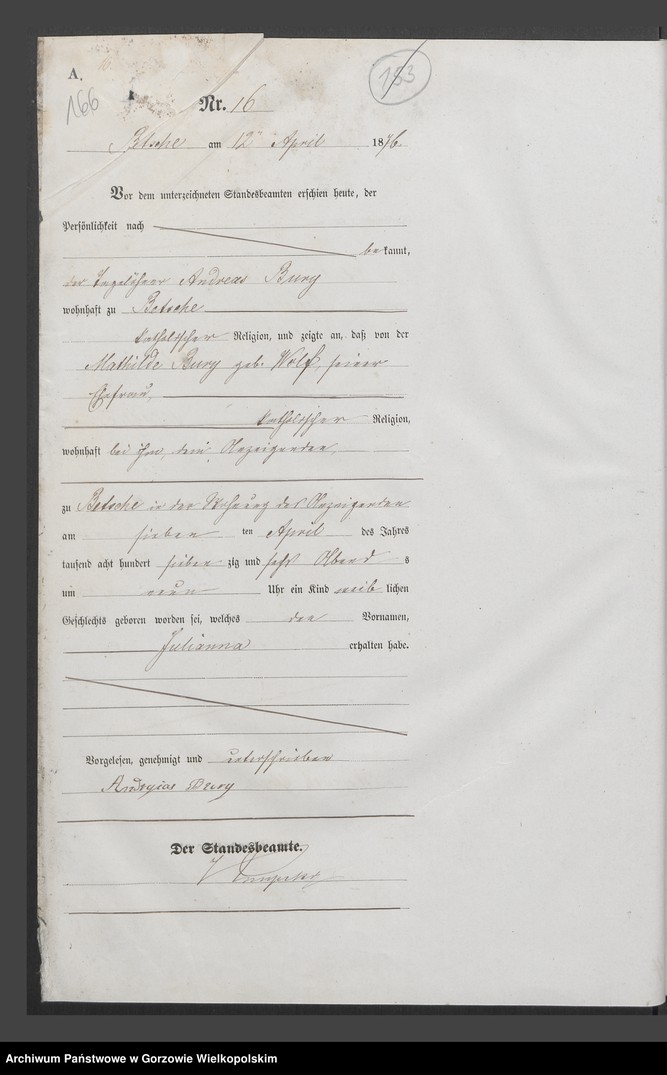 A.
166
153
Nr. 16
Betsche am 12 April 1876.
Vor dem unterzeichneten Standesbeamten erschien heute, der
Persönlichkeit nach
bekannt,
der Tagelöhner Andreas Bury
wohnhaft zu Betsche
katholischer Religion, und zeigte an, daß von der
Mathilde Bury geb. Wolf, seiner
Ehefrau,
katholischer Religion,
wohnhaft bei ihm, dem Anzeigenden,
zu Betsche in der Wohnung des Anzeigenden
am sieben ten April des Jahres
tausend acht hundert sieben zig und sechs Abend s
um neun Uhr ein Kind weib lichen
Geschlechts geboren worden sei, welches den Vornamen,
Julianna erhalten habe.
Vorgelesen, genehmigt und unterschrieben
Bury
Der Standesbeamte.
Archiwum Państwowe w Gorzowie Wielkopolskim